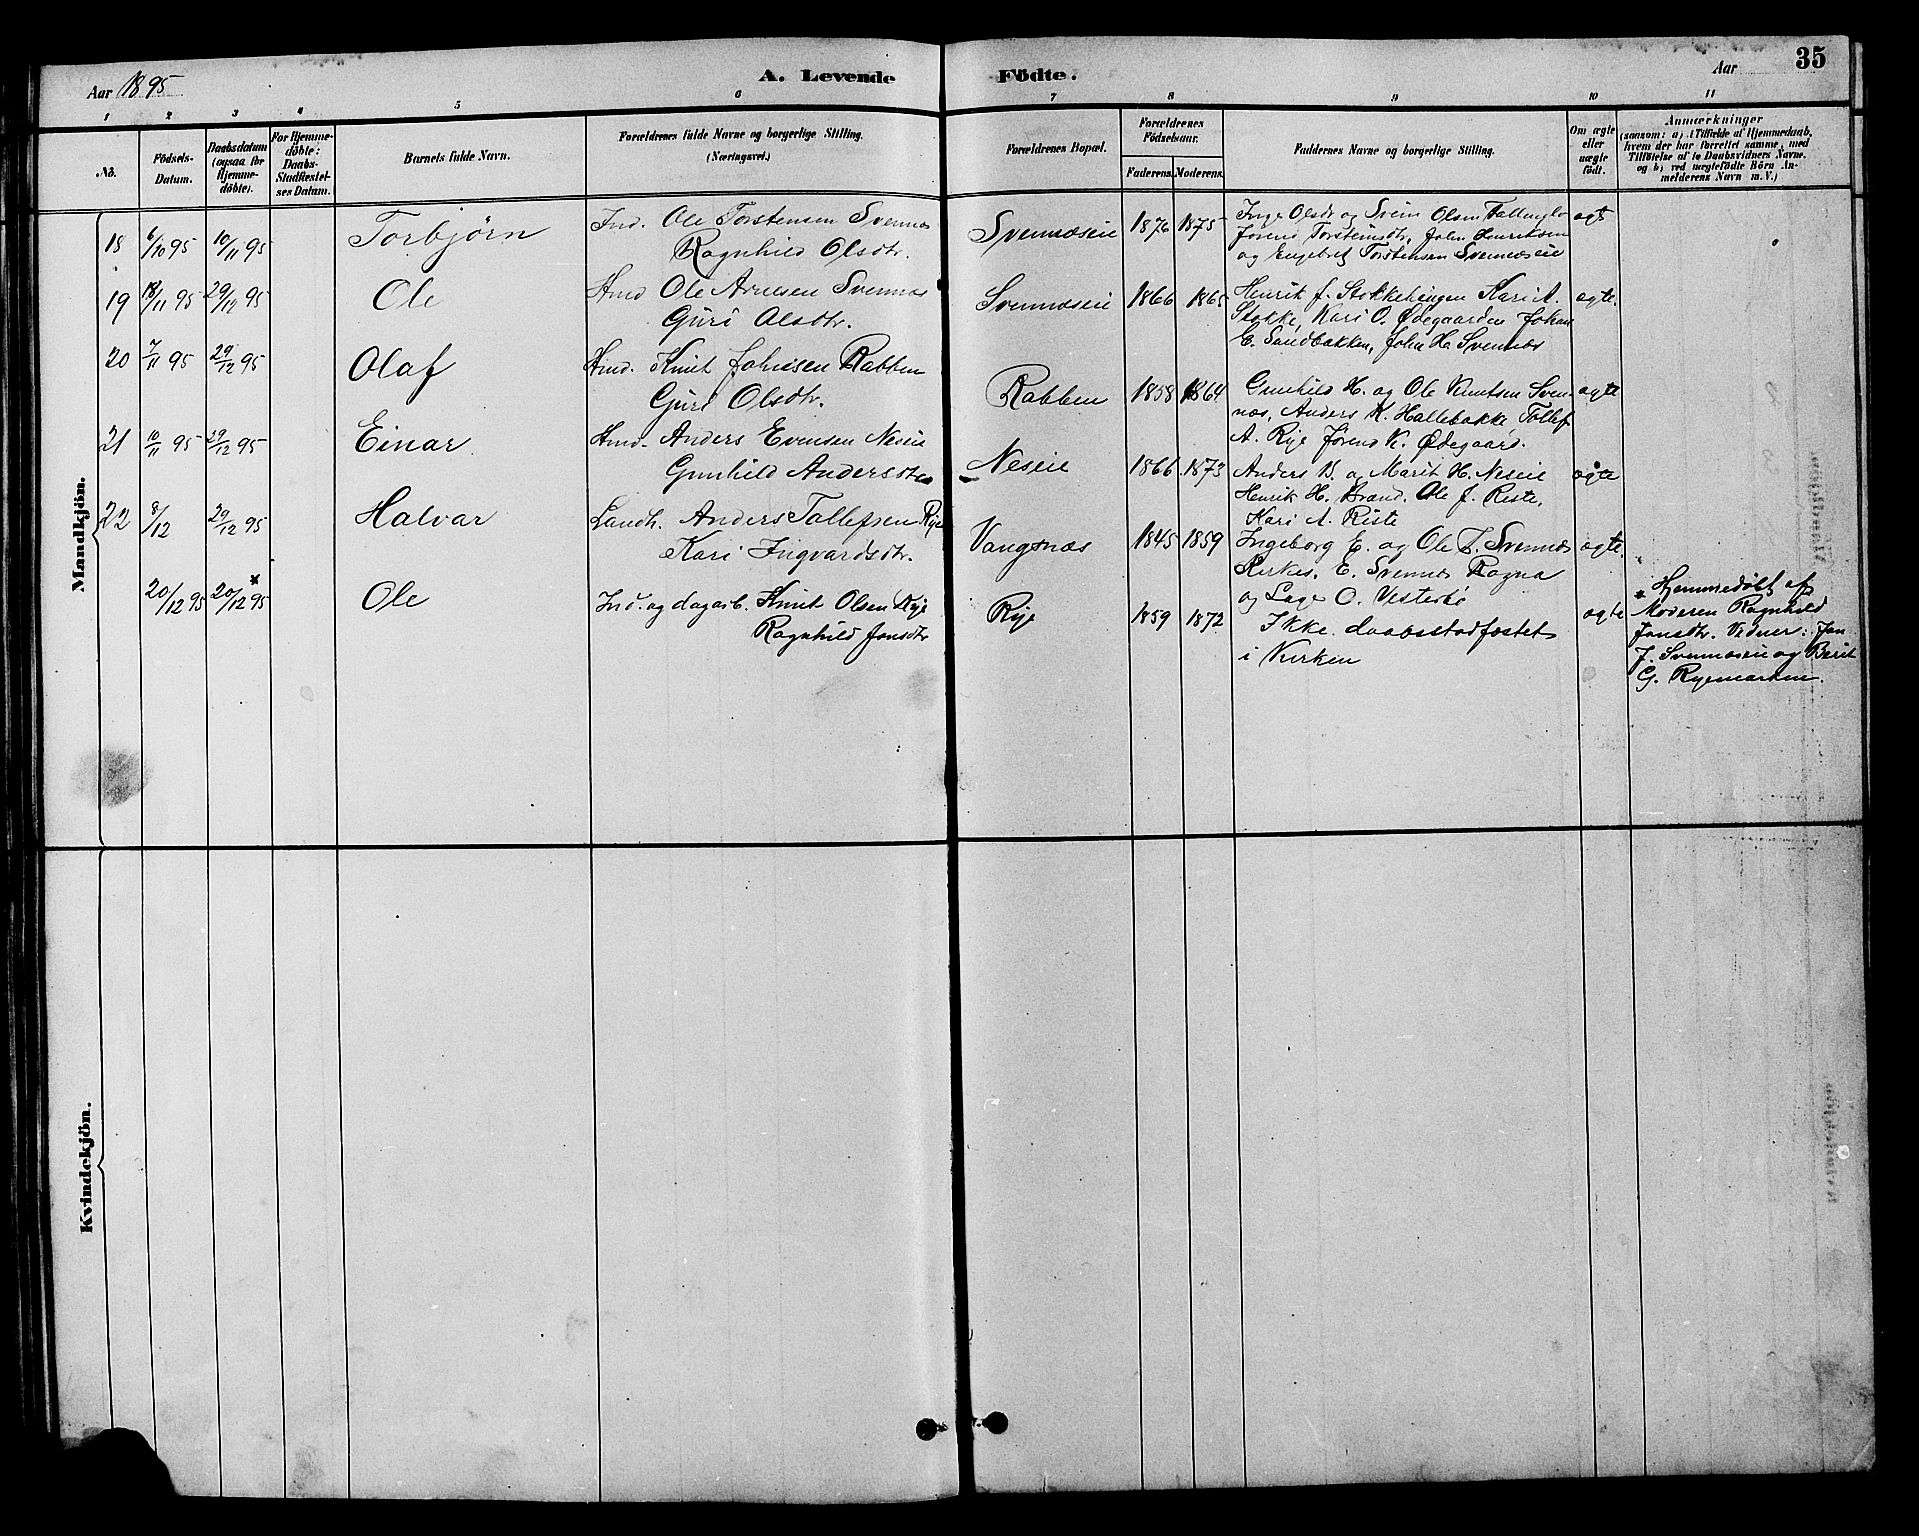 Aar 1895
A. Levende Födte.
Aar 35
1 2 3 4 5 6 7 8 9 10 11
No.
Födsels-Datum.
Daabsdatum (ogsaa for Hjemme-döbte).
For Hjemme-döbte: Daabs-Stadfæstel-ses Datum.
Barnets fulde Navn.
Forældrenes fulde Navne og borgerlige Stilling. (Næringsvei.)
Forældrenes Bopæl.
Forældrenes Födselsaar.
Faderens. Moderens.
Faddernes Navne og borgerlige Stilling.
Om ægte eller uægte födt.
Anmærkninger
(saasom: a) i Tilfælde af Hjemmedaab, hvem der har forrettet samme, med Tilföielse af to Daabsvidners Navne, og b) ved uægtefödte Börn An-melderens Navn m. V.)
Mandkjön.
18 6/10 95 10/11 95 Torbjörn Ind. Ole Torstensen Svennæs
Ragnhild Olsdtr.
Svennæseie 1876 1875 Inge Olsdr og Svein Olsen
Jörend Torsteinsdtr, John Henriksen
og Engebret Torstensen Svennæseie
ægte
19 18/11 95 29/12 95 Ole Hmd Ole Arnesen Svennæs
Guri Olsdtr.
Svennæseie 1866 1865 Henrik J. Stokkehengen Kari A.
Stokke, Kari O. Ødegaarden Johan
E. Sandbakken, John H. Svennæs
ægte.
20 7/11 95 29/12 95 Olaf Hmd. Knut Johnsen Rabben
Guri Olsdtr.
Rabben 1858 1864 Gunhild H. og Ole Knutsen Sven-
næs, Anders K. Hallebakke Tollef
A. Rye Jörend K. Ødegaard.
ægte
21 10/11 95 29/12 95 Einar Hmd. Anders Evensen Neseie
Gunhild Andersdtr
Neseie 1866 1873 Anders B. og Marit H. Neseie
Henrik H. Brænd. Ole J. Riste,
Kari A. Riste
ægte
22 8/12 29/12 95 Halvar Landh. Anders Tollefsen Rye
Kari Ingvardsdtr.
Vangsnæs 1845 1859 Ingeborg E. og Ole T. Svennæs
E. Svennæs Ragna
og Lage O. Vesterbö
ægte.
20/12 95 20/12 95 * Ole Ind. og dagarb. Knut Olsen Rye
Ragnhild Jonsdtr
Rye 1859 1872 Ikke daabsstadfæstet
i Kirken
ægte
* Hjemmedøbt af
Moderen Ragnhild
Jonsdtr. Vidner: Jon
J. Svennæseie og Berit
G. Ryemarken.
Kvindekjön.